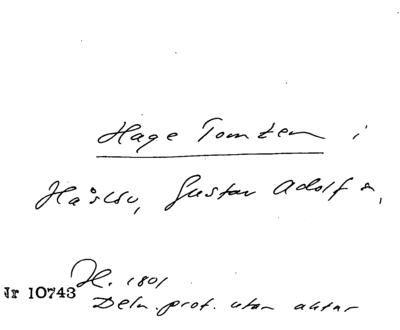 Hage Tomten i
Håslöv, Gustav Adolf s,
H. 1801
Nr 10743
Deln. prot. utan aktar